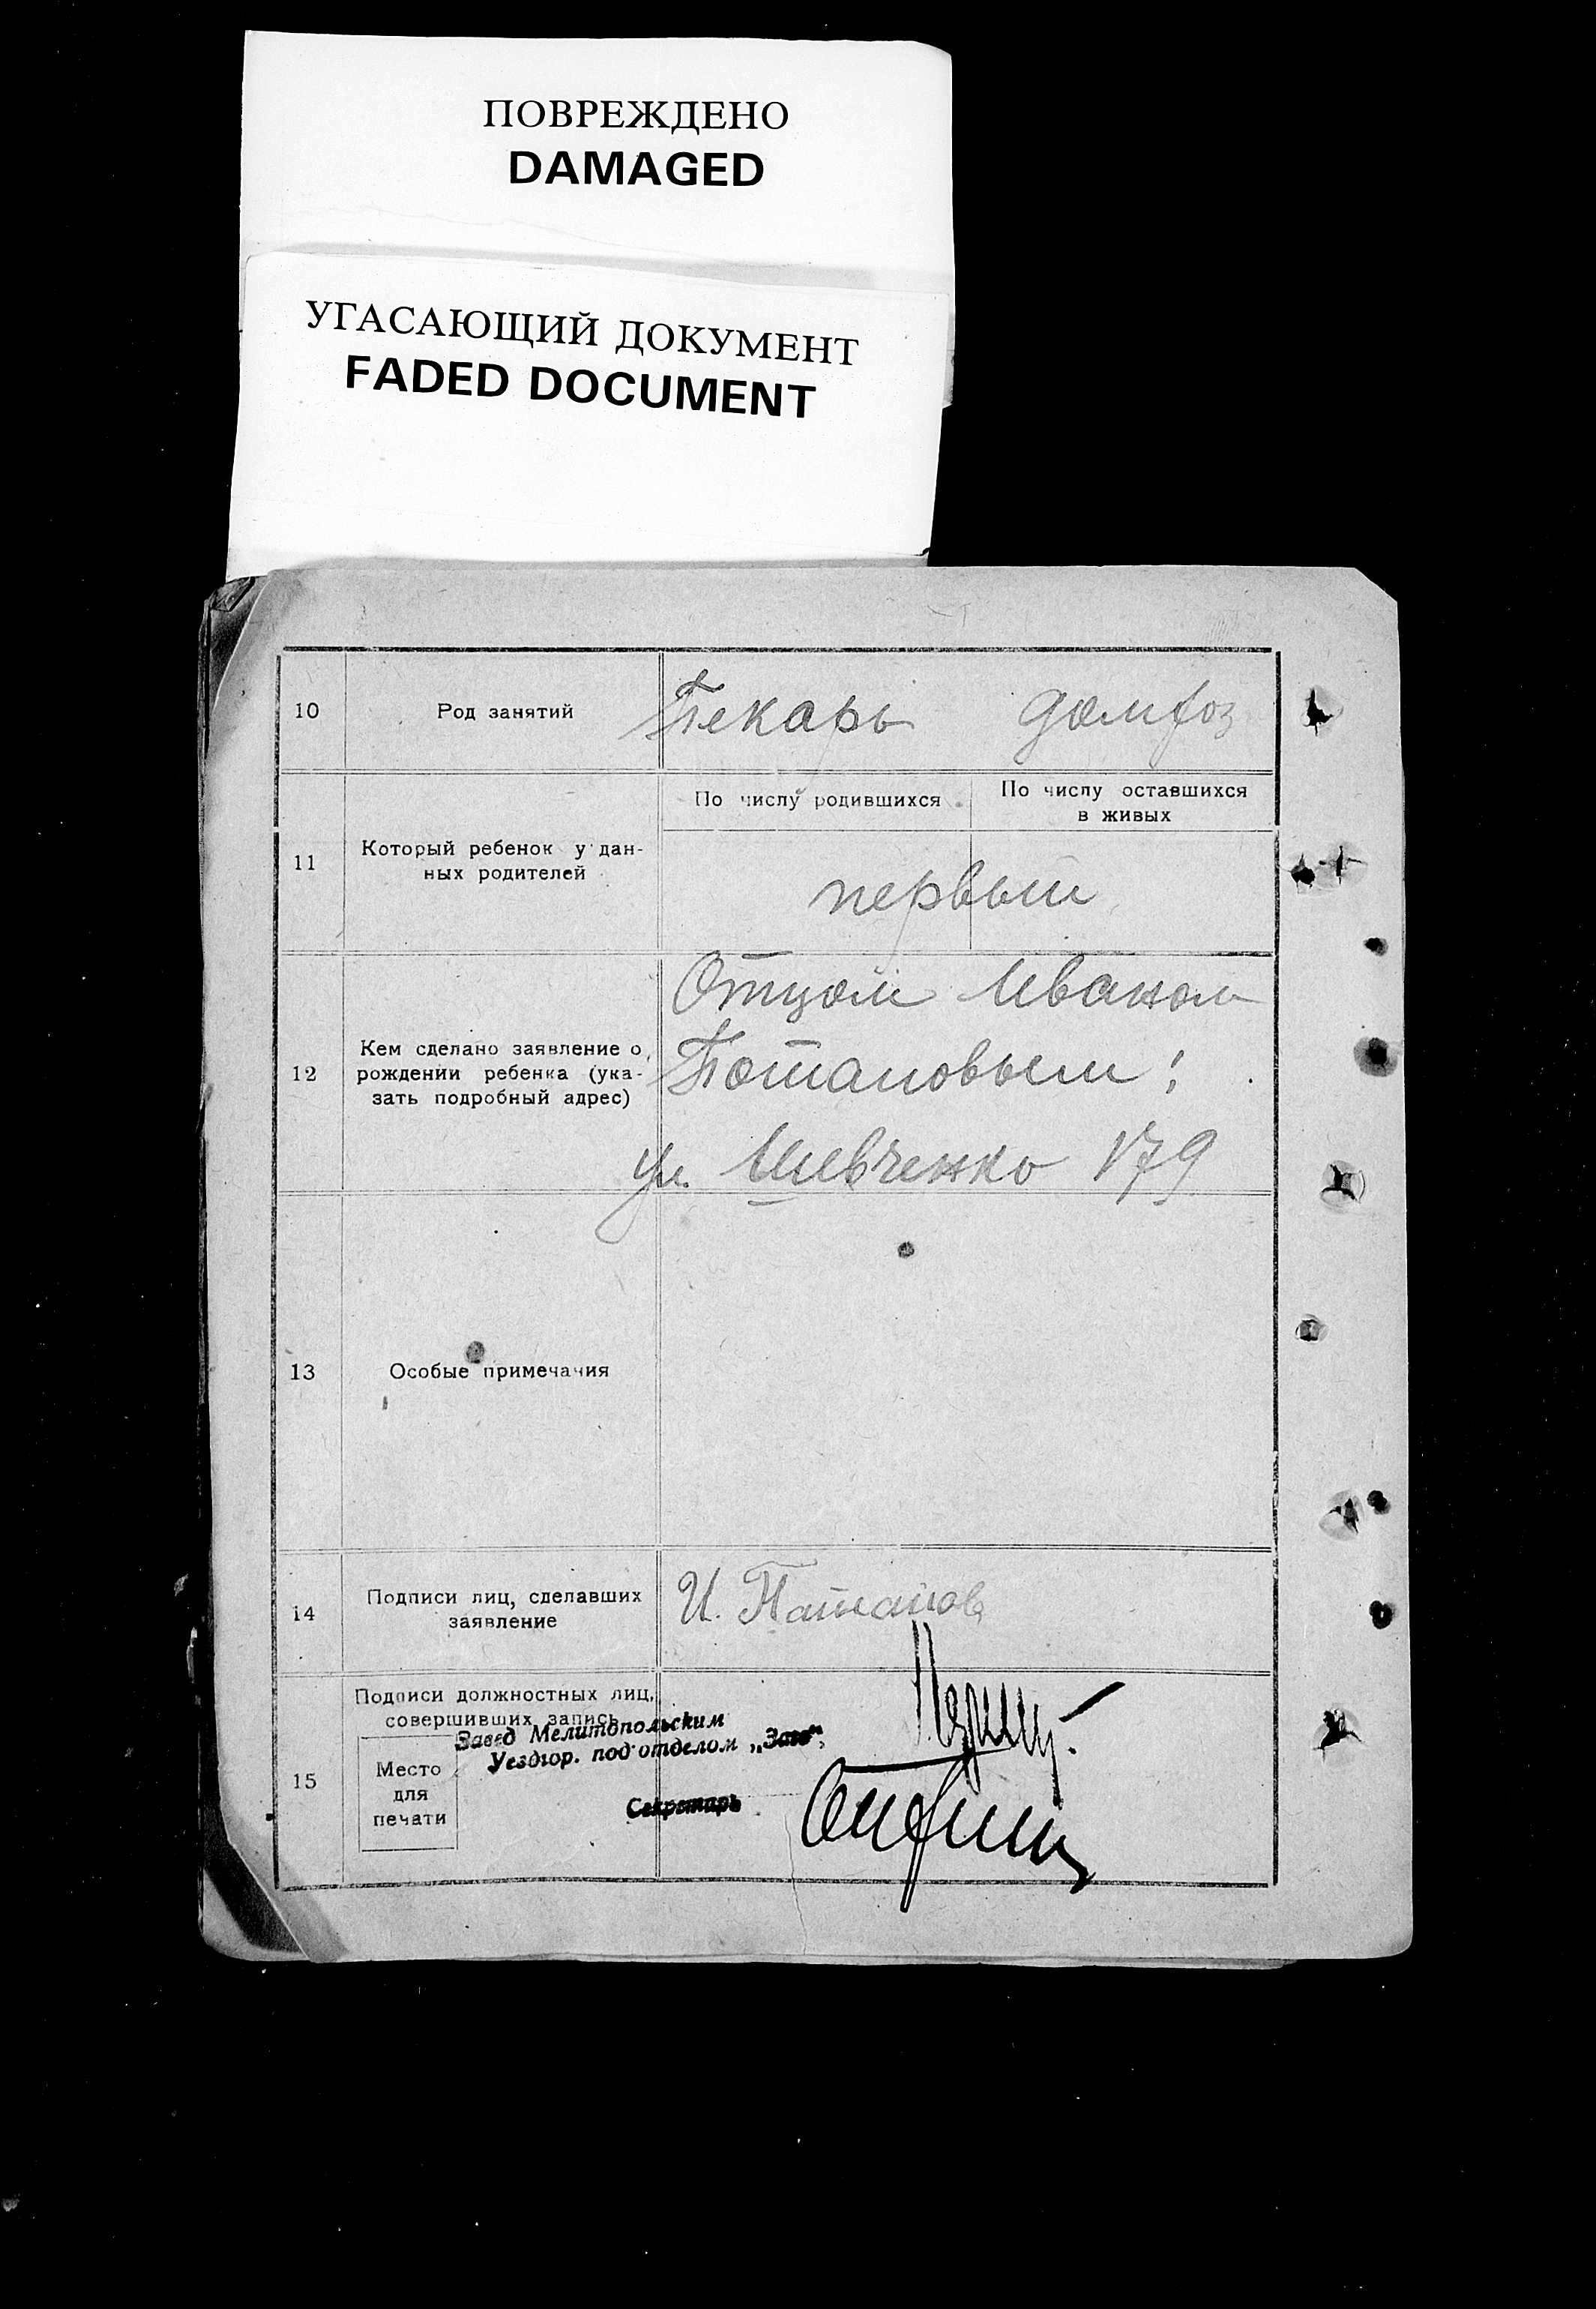 ПОВРЕЖДЕНО
DAMAGED
УГАСАЮЩИЙ ДОКУМЕНТ
FADED DOCUMENT
10 Род занятий Пекарь домхоз
11 Который ребенок у дан-
ных родителей
По числу родившихся
По числу оставшихся
в живых
первый
12 Кем сделано заявление о
рождении ребенка (ука-
зать подробный адрес)
Отцом Иваном
Потаповым;
ул. Шевченко 179
13 Особые примечания
14 Подписи лиц, сделавших
заявление
И. Патапов
15 Подписи должностных лиц,
совершивших запись
Завед Мелитопольским
Уездгор. подотделом „Загс“,
Место
для
печати
Секретарь